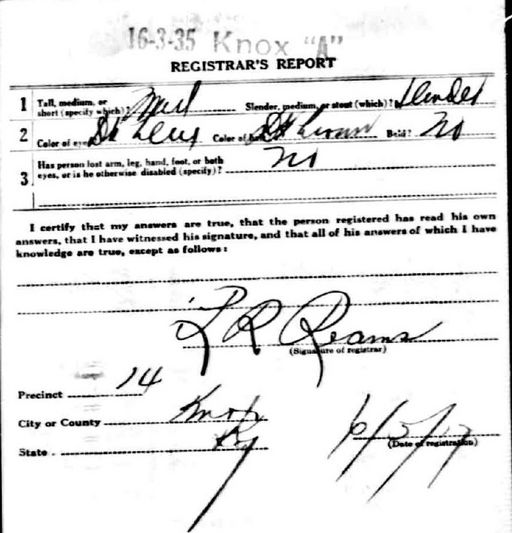 16-3-35 Knox "A"
REGISTRAR'S REPORT
1 Tall, medium, or short (specify which)? Med Slender, medium, or stout (which)? Slender
2 Color of eyes Dk Color of hair Dk Brown Bald? No
3 Has person lost arm, leg, hand, foot, or both eyes, or is he otherwise disabled (specify)? No
I certify that my answers are true, that the person registered has read his own
answers, that I have witnessed his signature, and that all of his answers of which I have
knowledge are true, except as follows:
L R Reams
(Signature of registrar)
Precinct 14
City or County Knox
State Ky
6/5/17
(Date of registration)